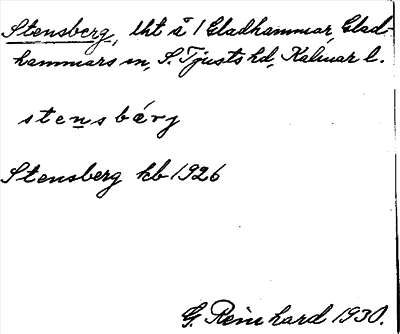 Stensberg, lht å 1 Gladhammar, Glad-
hammars sn, S. Tjusts hd, Kalmar l.
stensbárj
Stensberg kb 1926
G. Reinhard 1930.